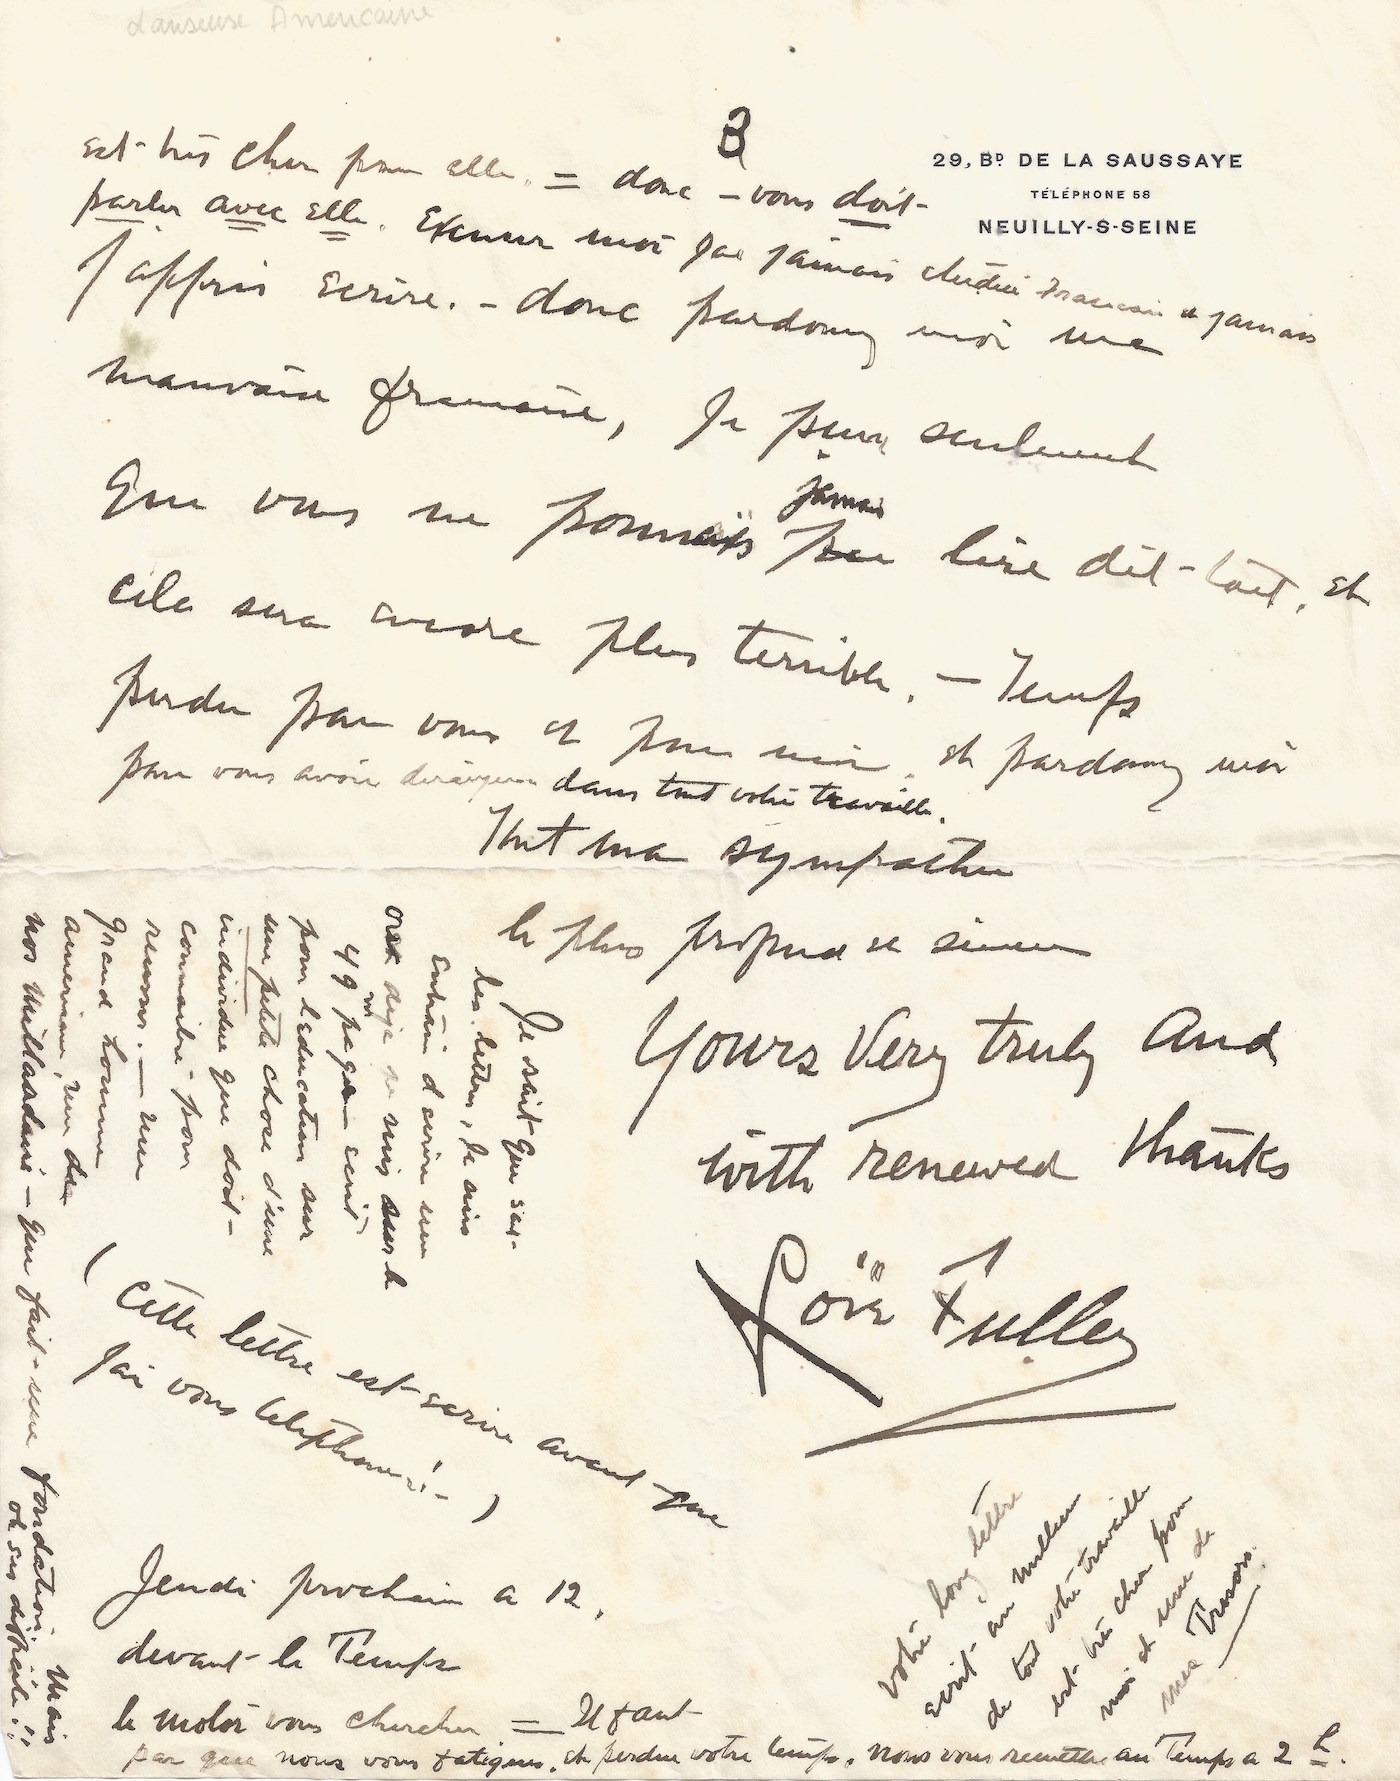 danseuse Americaine
3
29, Bᴅ DE LA SAUSSAYE
TÉLÉPHONE 58
NEUILLY-S-SEINE
est très cher pour elle. = donc - vous doit-
parler avec elle. Excuser moi J'ai jamais etudié Francais et jamais
J'appris ecrire. - donc pardonez moi me
mauvaise gramaire, Je peux seulement
que vous ne pourrais jamais lire dit-tout, et
cela sera encore plus terrible. - Temps
perdu pour vous et pour moi. et pardonnez moi
pour vous avoir deranger dans tout votre travaille.
Tout ma sympathie
le plus profond et sincere
Yours Very truly and
with renewed thanks
Loïe Fuller
Je sait que ses-
les lettres, Je suis
entrain d'ecrire un
deja je suis sur le
49me page ecrit
pour l'education sur
une petite chose d'une
individue que doit-
connaitre pour
reussir. - une
grand homme
americain, un des
nos milliardaire - que fait-une fondation Mais
oh ses dificile!!
(Cette lettre est-ecrire avant-que
J'ai vous telephone!-)
Jeudi prochain a 12,
devant-le Temps
le moteur vous chercher = Il faut-
par que nous vous fatigues, et perdre votre temps. nous vous remettre au Temps a 2 h.
votre long lettre
ecrit-au millieu
de tout votre travaille
est très cher pour
moi et une de
mes Tresors.